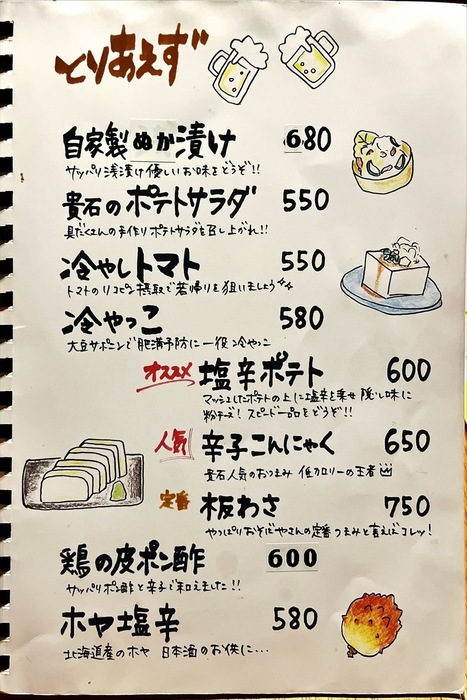 とりあえず
自家製ぬか漬け 680
サッパリ浅漬け優しいお味をどうぞ!!
貴石のポテトサラダ 550
具だくさんの手作りポテトサラダを召し上がれ!!
冷やしトマト 550
トマトのリコピン摂取で若帰りを狙いましょう
冷やっこ 580
大豆サポニンで肥満予防に一役 冷やっこ
オススメ 塩辛ポテト 600
マッシュしたポテトの上に塩辛を乗せ 隠し味に
粉チーズ! スピード一品をどうぞ!!
人気 辛子こんにゃく 650
貴石人気のおつまみ 低カロリーの王者
定番 板わさ 750
やっぱりおそばやさんの定番つまみと言えばコレッ!
鶏の皮ポン酢 600
サッパリポン酢と辛子で和えました!!
ホヤ塩辛 580
北海道産のホヤ 日本酒のお供に...